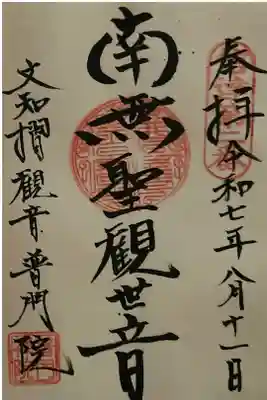 奉拝 令和七年八月十一日
南無聖觀世音
文知摺觀音普門院